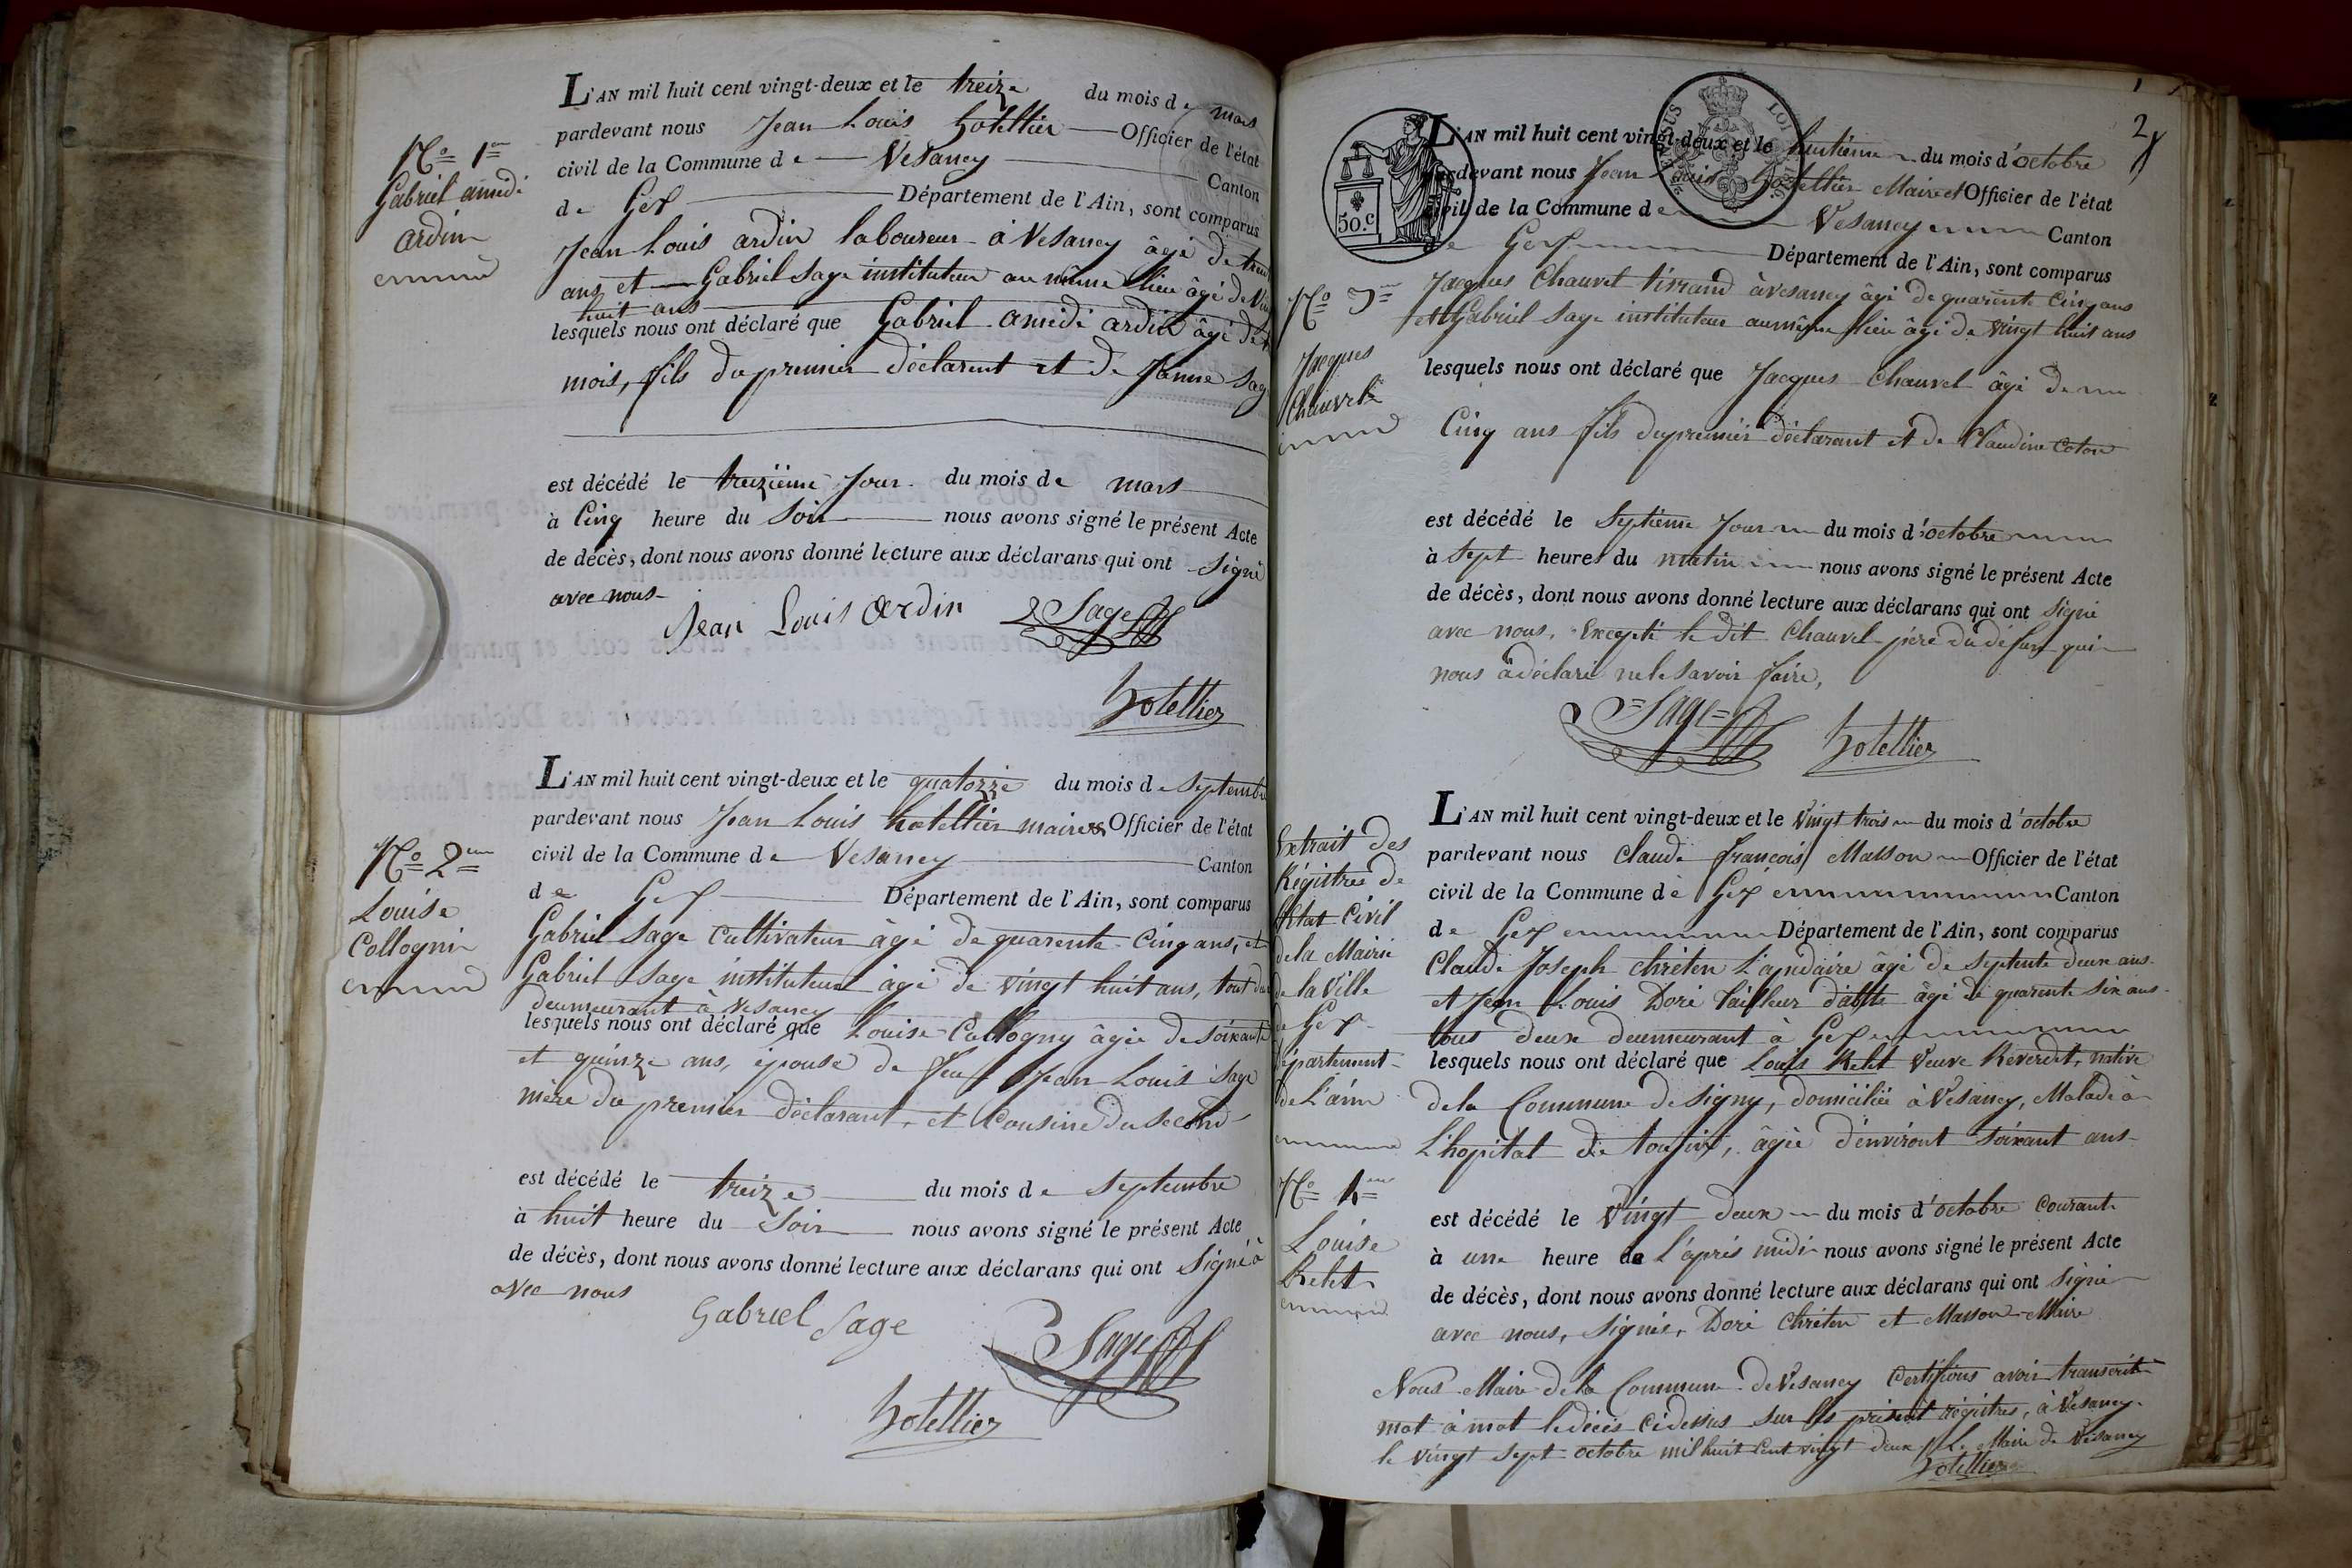 L'AN mil huit cent vingt-deux et le treize du mois de mars
pardevant nous Jean Louis hotellier Officier de l'état
civil de la Commune de Vesancy Canton
de Gex Département de l'Ain, sont comparus
Jean Louis ardin laboureur à Vesancy âgé de
ans et Gabriel Sage instituteur au même lieu âgé de
huit ans
lesquels nous ont déclaré que Gabriel amédé ardin âgé de
mois, fils du premier déclarent et de Janne Sage
est décédé le treizième Jour du mois de mars
à Cinq heure du Soir nous avons signé le présent Acte
de décès, dont nous avons donné lecture aux déclarans qui ont Signé
avec nous
Jean Louis Ardin Sage
hotellier
No 1er
Gabriel amédé
ardin
L'AN mil huit cent vingt-deux et le quatorze du mois de Septembre
pardevant nous Jean Louis hotellier maire et Officier de l'état
civil de la Commune de Vesancy Canton
de Gex Département de l'Ain, sont comparus
Gabriel Sage Cultivateur âgé de quarente Cinq ans, et
Gabriel Sage instituteur âgé de vingt huit ans, tout deux
deumeurant à Vesancy
lesquels nous ont déclaré que Louise Collogny âgée de soixante
et quinze ans, épouse de feu Jean Louis Sage
mère du premier déclarant, et Cousine du second
est décédé le treize du mois de Septembre
à huit heure du Soir nous avons signé le présent Acte
de décès, dont nous avons donné lecture aux déclarans qui ont Signé
avec nous
Gabriel Sage Sage
hotellier
No 2em
Louise
Collogni
2
50.c
LOI
L'AN mil huit cent vingt-deux et le huitième du mois d'octobre
pardevant nous Jean Louis hotellier Maire et Officier de l'état
civil de la Commune de Vesancy Canton
de Gex Département de l'Ain, sont comparus
Jacques Chauvet tisrand à Vesancy âgé de quarente Cinq ans
et Gabriel Sage instituteur au même lieu âgé de vingt huit ans
lesquels nous ont déclaré que Jacques Chauvet âgé de
Cinq ans fils du premier déclarant et de Claudine Coton
est décédé le Septième Jour du mois d'octobre
à Sept heures du matin nous avons signé le présent Acte
de décès, dont nous avons donné lecture aux déclarans qui ont Signé
avec nous, Excepté le dit Chauvet père du défunt qui
nous à déclaré ne le savoir faire,
Sage hotellier
No 3em
Jacques
Chauvet
L'AN mil huit cent vingt-deux et le Vingt trois du mois d'octobre
pardevant nous Claude François Masson Officier de l'état
civil de la Commune de Gex Canton
de Gex Département de l'Ain, sont comparus
Claude Joseph Chréten âgé de Septente deux ans
et Jean Louis Doré tailleur d'abits âgé de quarente six ans
tous deux deumeurant à Gex
lesquels nous ont déclaré que Louis Relet Veuve Reverdet, native
de la Commune de Signy, domiciliée à Vesancy, Malade à
L'hopital de âgée d'environt Soixant ans
est décédé le Vingt deux du mois d'octobre Courant
à une heure de l'après midi nous avons signé le présent Acte
de décès, dont nous avons donné lecture aux déclarans qui ont Signé
avec nous, Signés, Doré Chréten et Masson Maire
Nous Maire de la Commune de Vesancy Certifions avoir transcrit
mot à mot le décès cidessus sur les présent régistres, à Vesancy
le Vingt Sept octobre mil huit Cent vingt deux Le Maire de Vesancy
hotellier
Extrait des
Régistres de
l'état Civil
de la Mairie
de la Ville
de Gex
département
de L'ain
No 4em
Louise
Relet